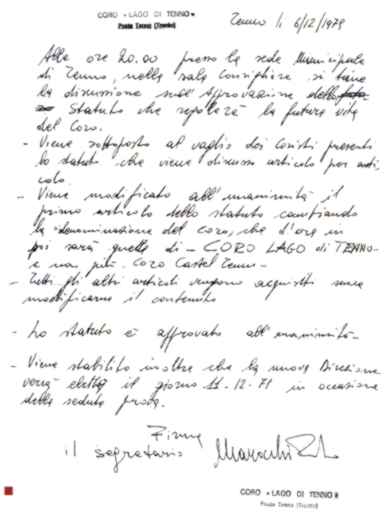 CORO "LAGO DI TENNO"
Ponte Tenno (Trento)
Tenno li 6/12/1978
Alle ore 20.00 presso la sede Municipale
di Tenno, nella sala Consigliare si tiene
la discussione sull'Approvazione
Statuto che regolerà la futura vita
del Coro.
- Viene sottoposto al vaglio dei Coristi presenti
lo statuto che viene discusso articolo per arti-
colo.
- Viene modificato all'unanimità il
primo articolo dello statuto cambiando
la denominazione del coro, che d'ora in
poi sarà quella di - CORO LAGO di TENNO -
e non più Coro Castel Tenno -
- Tutti gli altri articoli vengono acquisiti senza
modificarne il contenuto
- Lo statuto è approvato all'unanimità -
- Viene stabilito inoltre che la nuova Direzione
verrà eletta il giorno 11-12-78 in occasione
della seduta prova.
Firma
il segretario
CORO "LAGO DI TENNO"
Ponte Tenno (Trento)